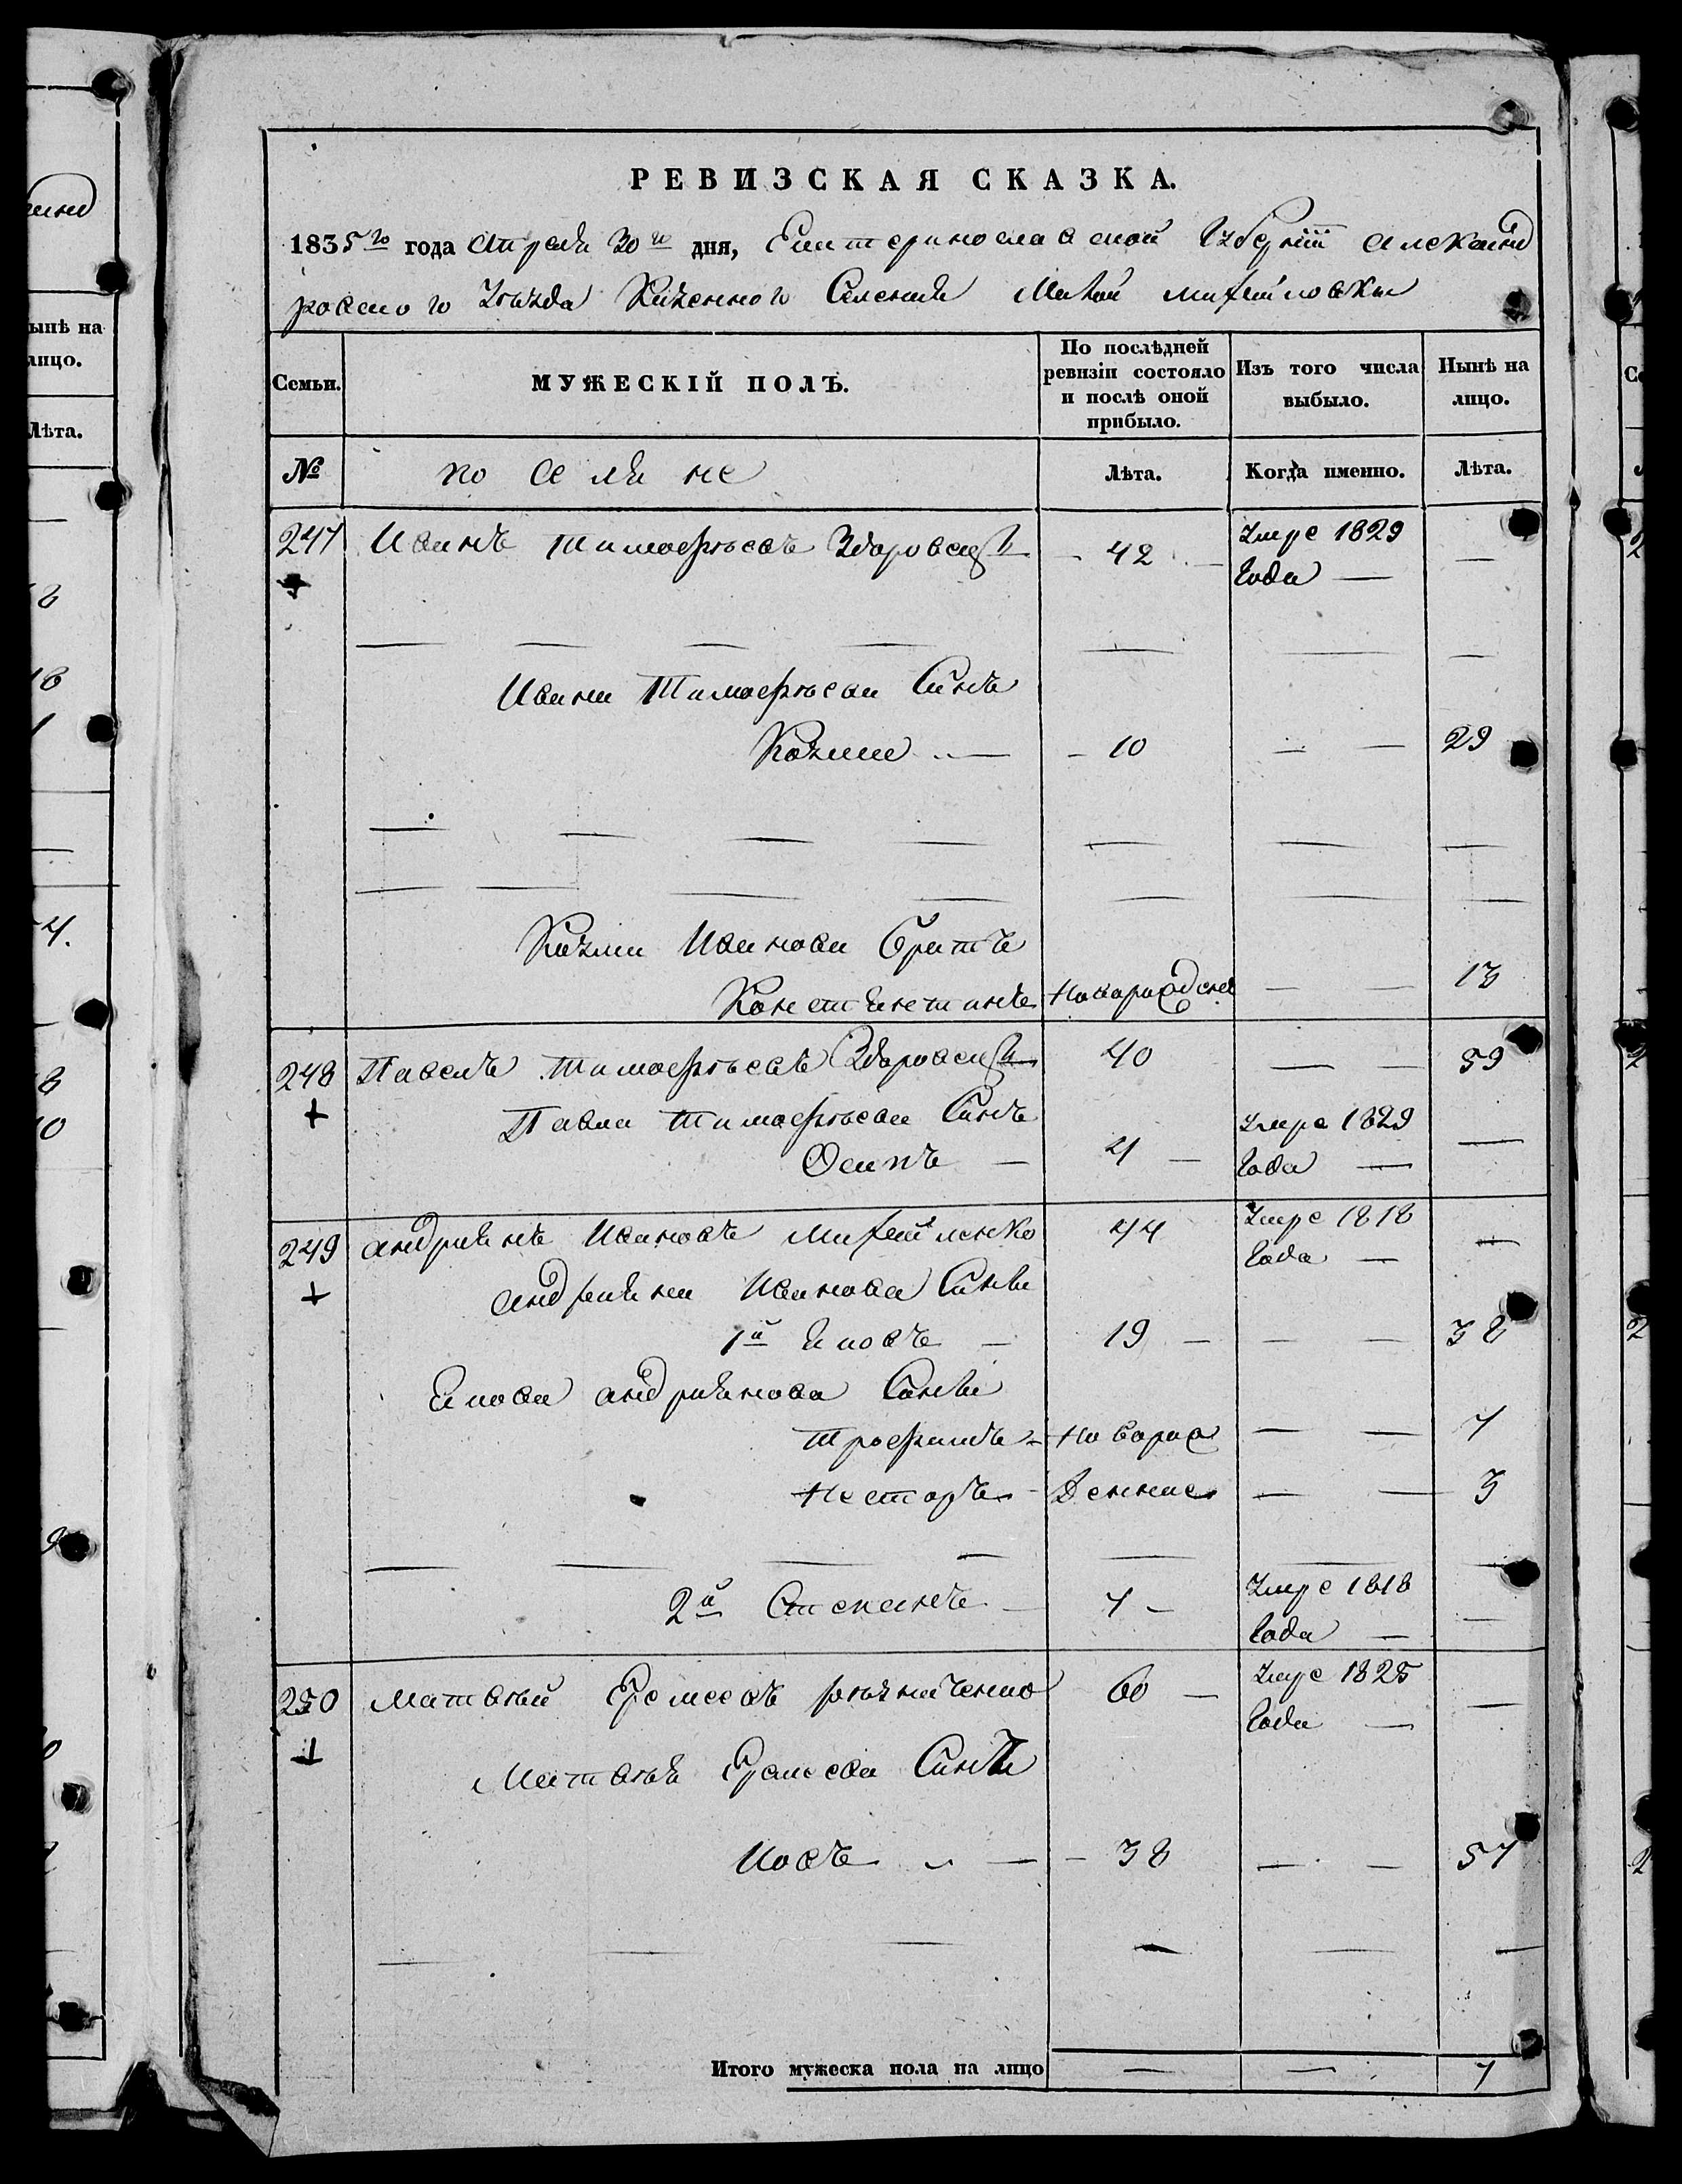 РЕВИЗСКАЯ СКАЗКА.
1835го года Апреля 30го дня, Екатеринославской Губерніи Александ
ровского Уѣзда Казенного Селения Малой Михайловки
Семьи. МУЖЕСКІЙ ПОЛЪ. По послѣдней ревизіи состояло и послѣ оной прибыло. Изъ того числа выбыло. Нынѣ на лицо.
№ Лѣта. Когда именно. Лѣта.
247 Иванъ Тимофѣевъ 42 Умре 1829
Года
Ивана Тимофѣева Синъ
Козма 10 29
Козми Иванова Братъ
Константинъ Новорожденъ 13
248 Павелъ Тимофѣевъ 40 59
Павла Тимофѣева Синъ Умре 1829
Осипъ 4 Года
249 Андриянъ Ивановъ Михайленко 44 Умре 1818
Года
Андрияна Иванова Сини
1й Яковъ 19 38
Якова Андриянова Сини
Трофимъ Новорож 7
Несторъ Денние 3
2й Степанъ 7 Умре 1818
Года
250 Матвѣй Еремеевъ 60 Умре 1825
Года
Матвѣя Еремеева Синъ
Иовъ 38 57
Итого мужеска пола на лицо 7
ынѣ на
лицо.
Лѣта.